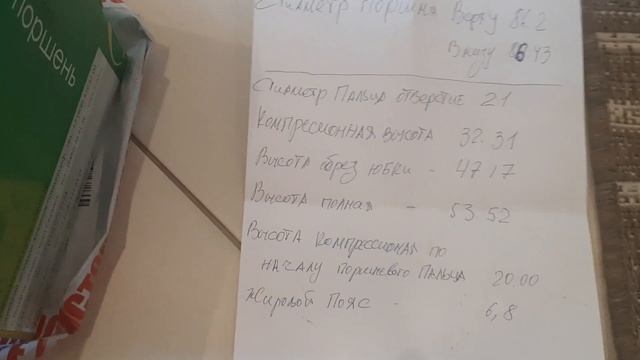 поршень
Диаметр поршня Верху 81.2
Внизу 43
Диаметр Пальца отверстие 21
Компрессионная высота 32.31
Высота юбки - 47 17
Высота полная - 53.52
Высота компрессионая по
началу поршневого Пальца 20.00
Жировой Пояс - 6,8